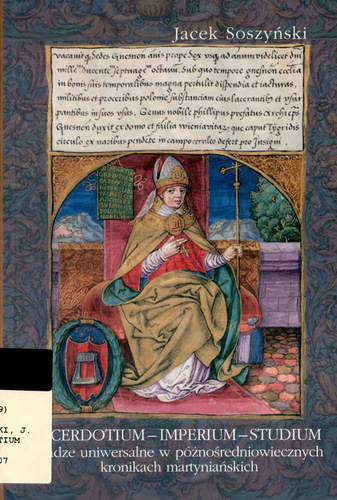 Jacek Soszyński
vacauitq sedes Gnesnen anis prope Dox usq ad annum videlicet dni
mille ducente septuagie octauū. Sub quo tempore gnesnen ecclia
in bonis suis temporalibus magna pertulit dispendia et iacturas,
militibus et proceribus polonie substanciam eius lacerantib et usur
pantibus in suos usus. Genus nobile phillipus prefatus
Gnesnen duxit ex domo et familia wieniavitaz que caput Tygridis
circulo ex naribus pendete in campo ceruleo defert pro Insigni
CERDOTIUM – IMPERIUM – STUDIUM
adze uniwersalne w późnośredniowiecznych
kronikach martyniańskich
9)
KI, J.
TIUM
07